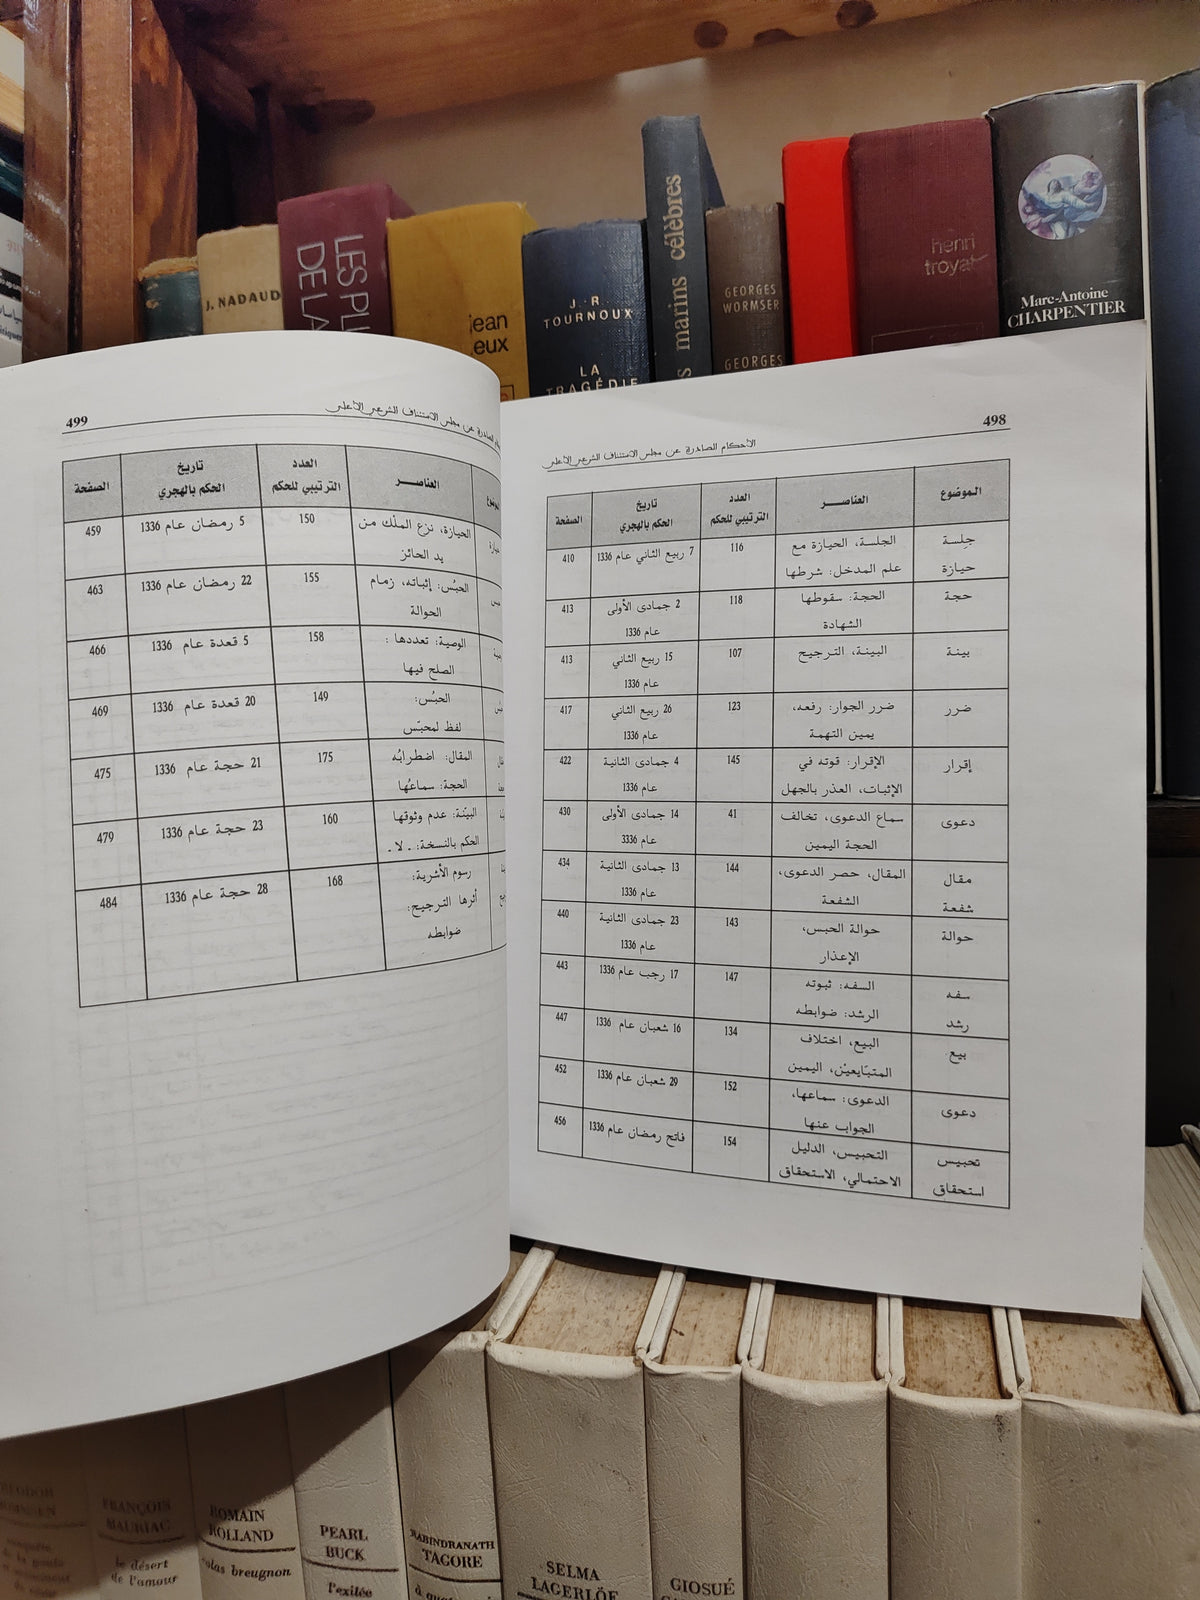 J. NADAUD
LES PLU
DE LA
jean
eux
J.-R.
TOURNOUX
LA
TRAGÉDIE
s marins célèbres
GEORGES
WORMSER
GEORGES
henri
troyat
Marc-Antoine
CHARPENTIER
498
الأحكام الصادرة عن مجلس الاستئناف الشرعي الأعلى
الموضوع العناصر العدد الترتيبي للحكم تاريخ الحكم بالهجري الصفحة
جلسة الجلسة، الحيازة مع 116 7 ربيع الثاني عام 1336 410
حيازة علم المدخل: شرطها
حجة الحجة: سقوطها 118 2 جمادى الأولى 413
الشهادة عام 1336
بينة البينة، الترجيح 107 15 ربيع الثاني 413
عام 1336
ضرر ضرر الجوار: رفعه، 123 26 ربيع الثاني 417
يمين التهمة عام 1336
إقرار الإقرار: قوته في 145 4 جمادى الثانية 422
الإثبات، العذر بالجهل عام 1336
دعوى سماع الدعوى، تخالف 41 14 جمادى الأولى 430
الحجة اليمين عام 3336
مقال المقال، حصر الدعوى، 144 13 جمادى الثانية 434
شفعة الشفعة عام 1336
حوالة حوالة الحبس، 143 23 جمادى الثانية 440
الإعذار عام 1336
سفه السفه: ثبوته 147 17 رجب عام 1336 443
رشد الرشد: ضوابطه
بيع البيع، اختلاف 134 16 شعبان عام 1336 447
المتبايعين، اليمين
دعوى الدعوى: سماعها، 152 29 شعبان عام 1336 452
الجواب عنها
تحبيس التحبيس، الدليل 154 فاتح رمضان عام 1336 456
استحقاق الاحتمالي، الاستحقاق
499
الصادرة عن مجلس الاستئناف الشرعي الأعلى
العناصر العدد الترتيبي للحكم تاريخ الحكم بالهجري الصفحة
الحيازة، نزع الملك من 150 5 رمضان عام 1336 459
يد الحائز
الحبُس: إثباته، زمام 155 22 رمضان عام 1336 463
الحوالة
الوصية: تعددها: 158 5 قعدة عام 1336 466
الصلح فيها
الحبُس: 149 20 قعدة عام 1336 469
لفظ لمحبّس
المقال: اضطرابُه 175 21 حجة عام 1336 475
الحجة: سماعُها
البيّنة: عدم وثوقها 160 23 حجة عام 1336 479
الحكم بالنسخة: - لا -
رسوم الأشرية: 168 28 حجة عام 1336 484
أثرها الترجيح:
ضوابطه
FRANÇOIS
MAURIAC
le désert
de l'amour
ROMAIN
ROLLAND
colas breugnon
PEARL
BUCK
l'exilée
RABINDRANATH
TAGORE
SELMA
LAGERLÖF
GIOSUÉ